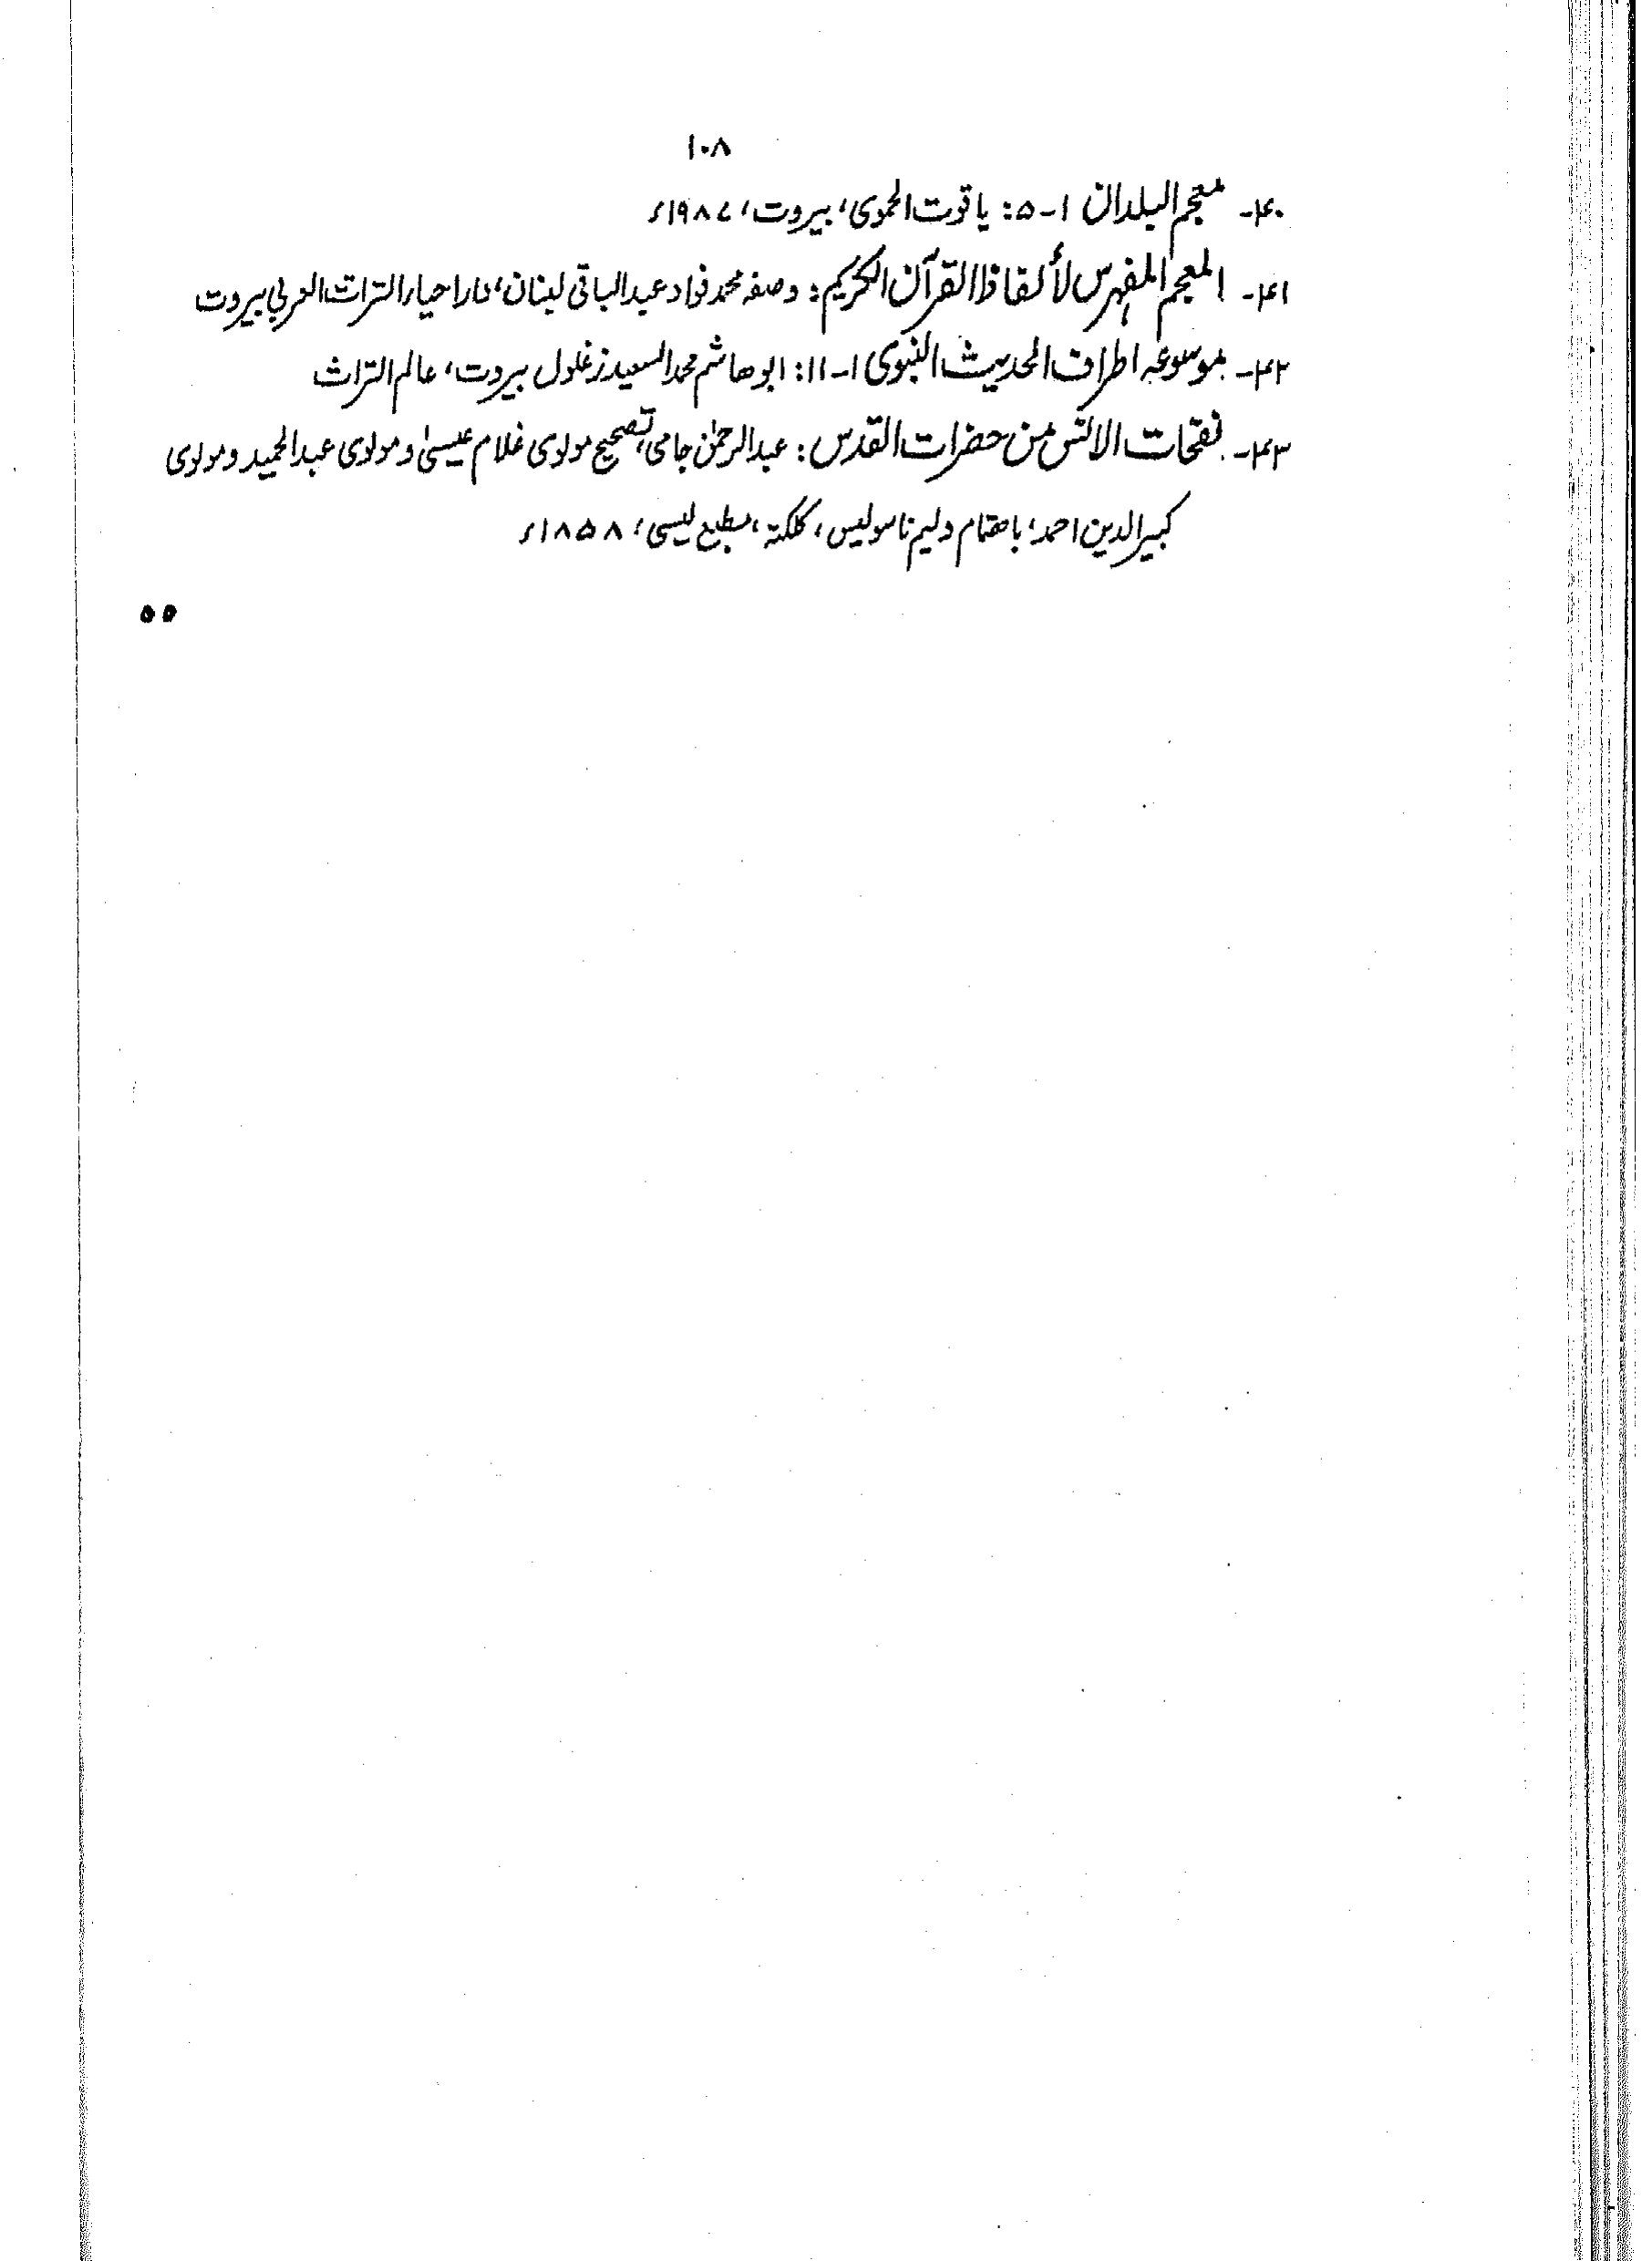 ۱۰۸
۴۰- معجم البلدان ۱-۵: یاقوت الحموی، بیروت، ۱۹۸۷ء
۴۱- المعجم المفہرس لألفاظ القرآن الکریم: وصفہ محمد فواد عبدالباقی لبنان، دار احیاء التراث العربی بیروت
۴۲- موسوعہ اطراف الحدیث النبوی ۱-۱۱: ابو ھاشم محمد السعید زغلول بیروت، عالم التراث
۴۳- نفحات الانس من حضرات القدس: عبدالرحمٰن جامی، تصحیح مولوی غلام عیسیٰ و مولوی عبدالحمید و مولوی
کبیر الدین احمد، باھتمام ولیم ناسولیس، کلکتہ، مطبع لیسی، ۱۸۵۸ء
٥٥